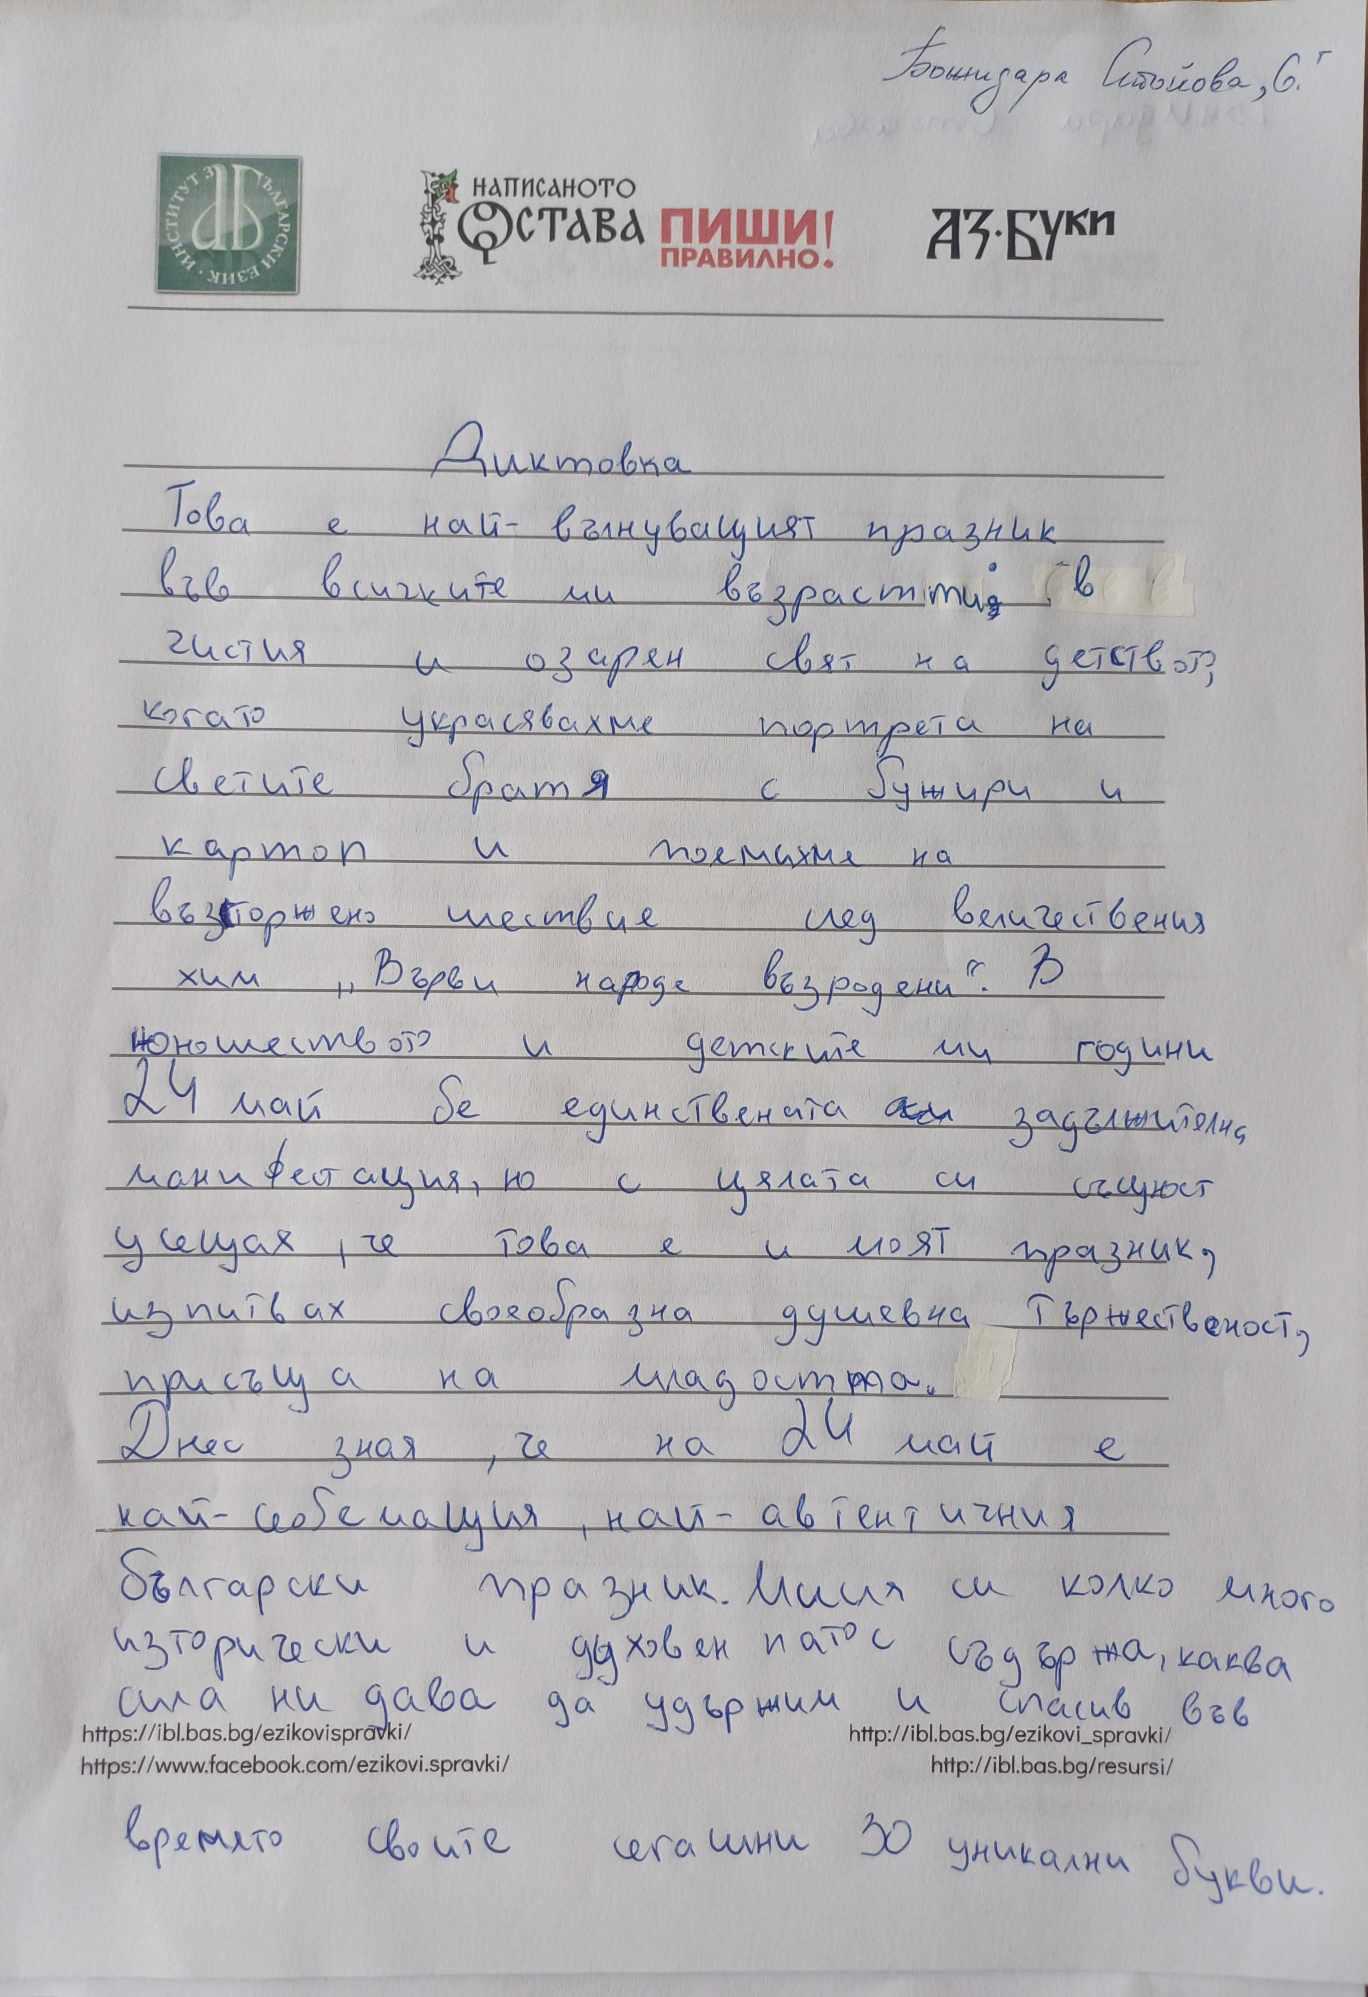 Божидара Стойова, 6.г
ИНСТИТУТ ЗА БЪЛГАРСКИ ЕЗИК
НАПИСАНОТО
ОСТАВА ПИШИ
ПРАВИЛНО!
АЗ·БУКИ
Диктовка
Това е най-вълнуващият празник
във всичките ми възрасти: в
чистия и озарен свят на детството,
когато украсявахме портрета на
светите братя с бужири и
картоп и поемахме на
възторжено шествие след величествения
химн „Върви народе възродени“. В
юношеството и детските ми години
24 май бе единствената задължителна
манифестация, но с цялата си същност
усещах, че това е и моят празник,
изпитвах своеобразна душевна тържественост,
присъща на младостта.
Днес зная, че на 24 май е
най-свободнащия, най-автентичния
български празник. Мисля си колко много
изторически и духовен патос съдържа, каква
сила ни дава да удържим и спасив във
времято своите сегашни 30 уникални букви.
https://ibl.bas.bg/ezikovispravki/ http://ibl.bas.bg/ezikovi_spravki/
https://www.facebook.com/ezikovi.spravki/ http://ibl.bas.bg/resursi/